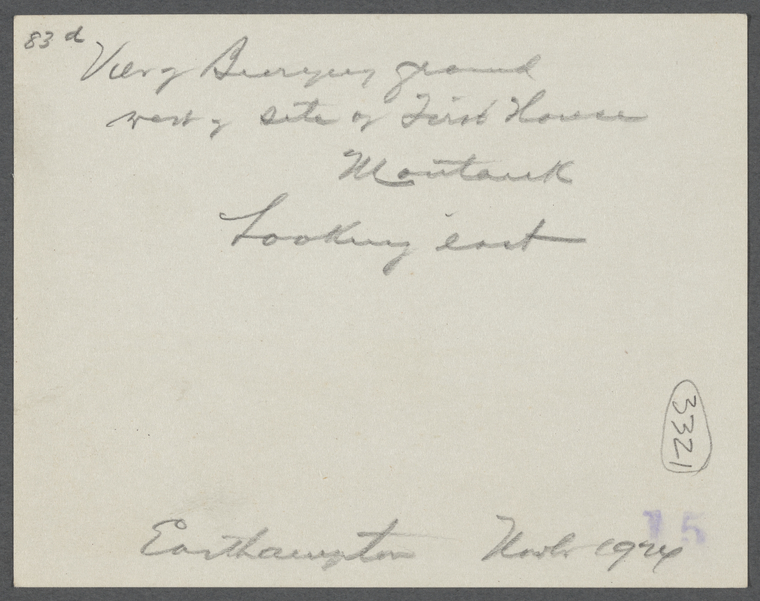 83d
View of Burying ground
west of site of First House
Montauk
Looking east
3321
15
Easthampton Novbr 1924